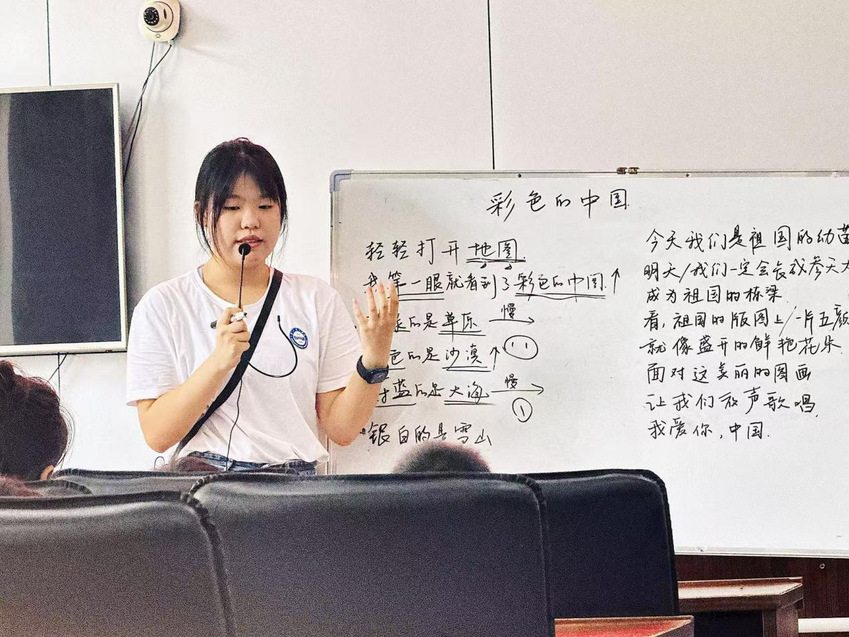 彩色的中国
轻轻打开地图
我第一眼就看到了彩色的中国↑
的是草原 慢
色的是沙漠↑
蓝的是大海 慢
银白的是雪山
今天我们是祖国的幼苗
明天/我们一定会长成参天大
成为祖国的栋梁
看,祖国的版图上/一片五颜
就像盛开的鲜艳花朵
面对这美丽的图画
让我们放声歌唱
我爱你,中国.